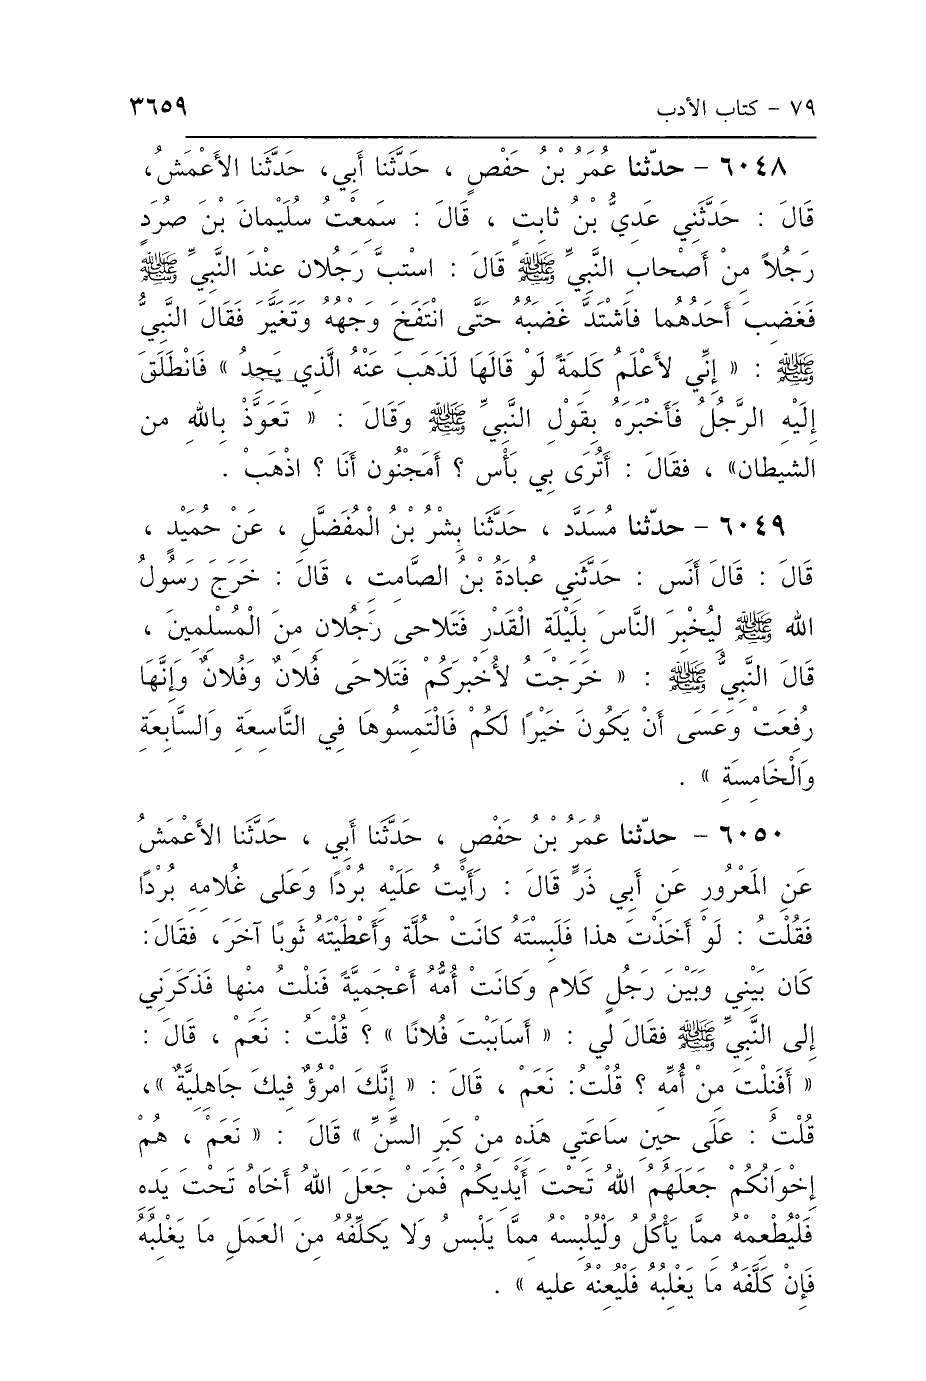 ٧٩ - كتاب الأدب ٣٦٥٩
٦٠٤٨ - حدّثنا عُمَرُ بْنُ حَفْصٍ ، حَدَّثَنا أَبي، حَدَّثَنا الأَعْمَشُ،
قَالَ : حَدَّثَني عَديُّ بْنُ ثابتٍ ، قَالَ : سَمعْتُ سُلَيْمانَ بْنَ صُرَدٍ
رَجُلاً مِنْ أَصْحابِ النَّبيِّ ﷺ قَالَ : استبَّ رَجُلان عنْدَ النَّبيِّ ﷺ
فَغَضبَ أَحَدُهُما فاَشْتَدَّ غَضبُهُ حَتَّى انْتَفَخَ وَجْهُهُ وَتَغَيَّرَ فَقَالَ النَّبيُّ
ﷺ : « إنِّي لأَعْلَمُ كَلمَةً لَوْ قَالَهَا لَذَهَبَ عَنْهُ الَّذي يَجِدُ » فَانْطَلَقَ
إلَيْهِ الرَّجُلُ فَأَخْبَرَهُ بِقَوْلِ النَّبيِّ ﷺ وَقَالَ : « تَعَوَّذْ بالله من
الشيطان» ، فقَالَ : أَتُرَى بي بَأْس ؟ أَمَجْنُون أَنَا ؟ اذْهَبْ .
٦٠٤٩ - حدّثنا مُسَدَّد ، حَدَّثَنَا بشْرُ بْنُ الْمُفَضَّلِ ، عَنْ حُمَيْدٍ ،
قَالَ : قَالَ أَنَس : حَدَّثَني عُبادَةُ بْنُ الصَّامتِ ، قَالَ : خَرَجَ رَسُولُ
الله ﷺ ليُخْبِرَ النَّاسَ بلَيْلَةِ الْقَدْرِ فَتَلاحى رَجُلانِ منَ الْمُسْلمِينَ ،
قَالَ النَّبيُّ ﷺ : « خَرَجْتُ لأُخْبرَكُمْ فَتَلاحَى فُلانٌ وَفُلانٌ وَإنَّهَا
رُفعَتْ وَعَسَى أَنْ يَكُونَ خَيْرًا لَكُمْ فَالْتَمسُوهَا في التَّاسعَةِ وَالسَّابعَةِ
وَالْخَامسَةِ » .
٦٠٥٠ - حدّثنا عُمَرُ بْنُ حَفْصٍ ، حَدَّثَنَا أَبي ، حَدَّثَنَا الأَعْمَشُ
عَنِ المَعْرُورِ عَن أَبي ذَرٍّ قَالَ : رَأَيْتُ عَلَيْهِ بُرْدًا وَعَلى غُلامهِ بُرْدًا
فَقُلْتُ : لَوْ أَخَذْتَ هذا فَلَبسْتَهُ كانَتْ حُلَّة وأَعْطَيْتَهُ ثَوبًا آخَرَ، فقَالَ:
كَان بَيْني وَبَيْنَ رَجُلٍ كَلام وَكانَتْ أُمُّهُ أَعْجَميَّةً فَنلْتُ منْها فَذَكَرَني
إلى النَّبيِّ ﷺ فقَالَ لي : « أَسَابَبْتَ فُلانًا » ؟ قُلْتُ : نَعَمْ ، قَالَ :
« أَفَنلْتَ منْ أُمِّه ؟ قُلْتُ: نَعَمْ ، قَالَ : « إنَّكَ امْرُؤٌ فيكَ جَاهليَّةٌ »،
قُلْتُ : عَلَى حينِ سَاعَتي هَذه منْ كبَرِ السِّنِّ » قَالَ : « نَعَمْ ، هُمْ
إخْوَانُكُمْ جَعَلَهُمُ اللهُ تَحْتَ أَيْديكُمْ فَمَنْ جَعَلَ اللهُ أَخَاهُ تَحْت يَده
فَلْيُطْعمْهُ ممَّا يَأْكُلُ وَلْيُلْبسْهُ ممَّا يَلْبسُ وَلا يَكلِّفُهُ منَ العَمَلِ مَا يَغْلبُهُ
فَإنْ كَلَّفَهُ مَا يَغْلبُهُ فَلْيُعنْهُ عليه » .